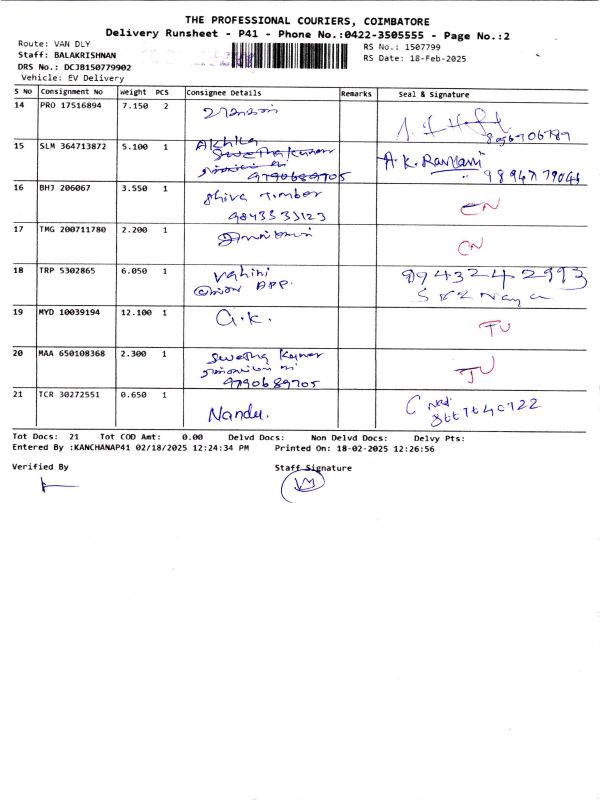 THE PROFESSIONAL COURIERS, COIMBATORE
Delivery Runsheet - P41 - Phone No.:0422-3505555 - Page No.:2
Route: VAN DLY
Staff: BALAKRISHNAN
DRS No.: DCJB150779902
Vehicle: EV Delivery
RS No.: 1507799
RS Date: 18-Feb-2025
S No Consignment No Weight PCS Consignee Details Remarks Seal & Signature
14 PRO 17516894 7.150 2
15 SLM 364713872 5.100 1 Akhila A.K. Ranjani
Swetha Kumar
9790689705
16 BHJ 206067 3.550 1 Shiva Timber CN
9843533123
17 TMG 200711780 2.200 1 CN
18 TRP 5302865 6.050 1 Vahini 8943242993
19 MYD 10039194 12.100 1 G.K. FU
20 MAA 650108368 2.300 1 Swetha Kumar
9790689705
21 TCR 30272551 0.650 1 Nandu.
Tot Docs: 21 Tot COD Amt: 0.00 Delvd Docs: Non Delvd Docs: Delvy Pts:
Entered By :KANCHANAP41 02/18/2025 12:24:34 PM Printed On: 18-02-2025 12:26:56
Verified By Staff Signature